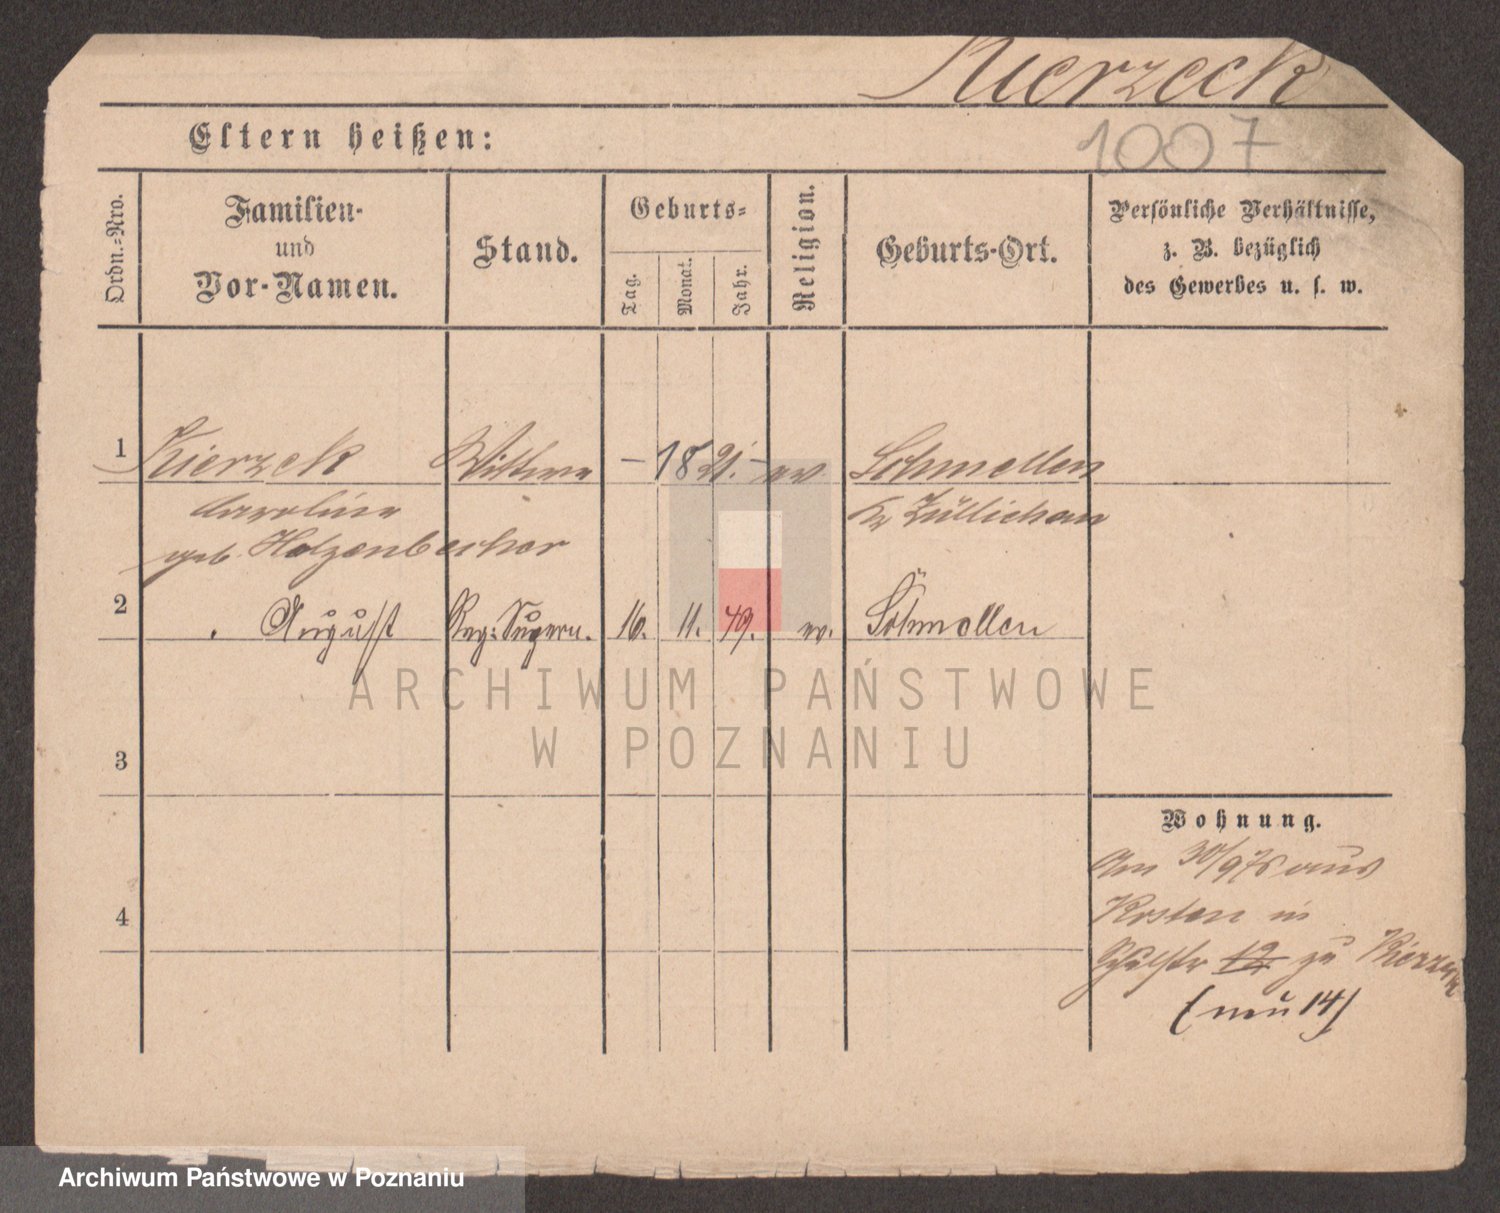 Kierzeck
1007
Eltern heißen:
Ordn.=Nro.
Familien-
und
Vor-Namen.
Stand.
Geburts=
Tag.
Monat.
Jahr.
Religion.
Geburts-Ort.
Persönliche Verhältnisse,
z. B. bezüglich
des Gewerbes u. s. w.
1 Kierzek Wittwe – 18 21. – ev Schmellen
Caroline Kr Züllichau
geb. Holzenbecher
2 August Reg: Supern. 16. 11. 49. ev. Schmöllen
ARCHIWUM PAŃSTWOWE
W POZNANIU
3
Wohnung.
Am 30/9 76 aus
4 Kosten in
Schulstr 12 zu
(neu 14)
Archiwum Państwowe w Poznaniu